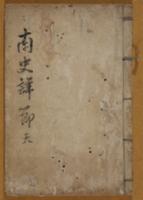 南史詳節 天